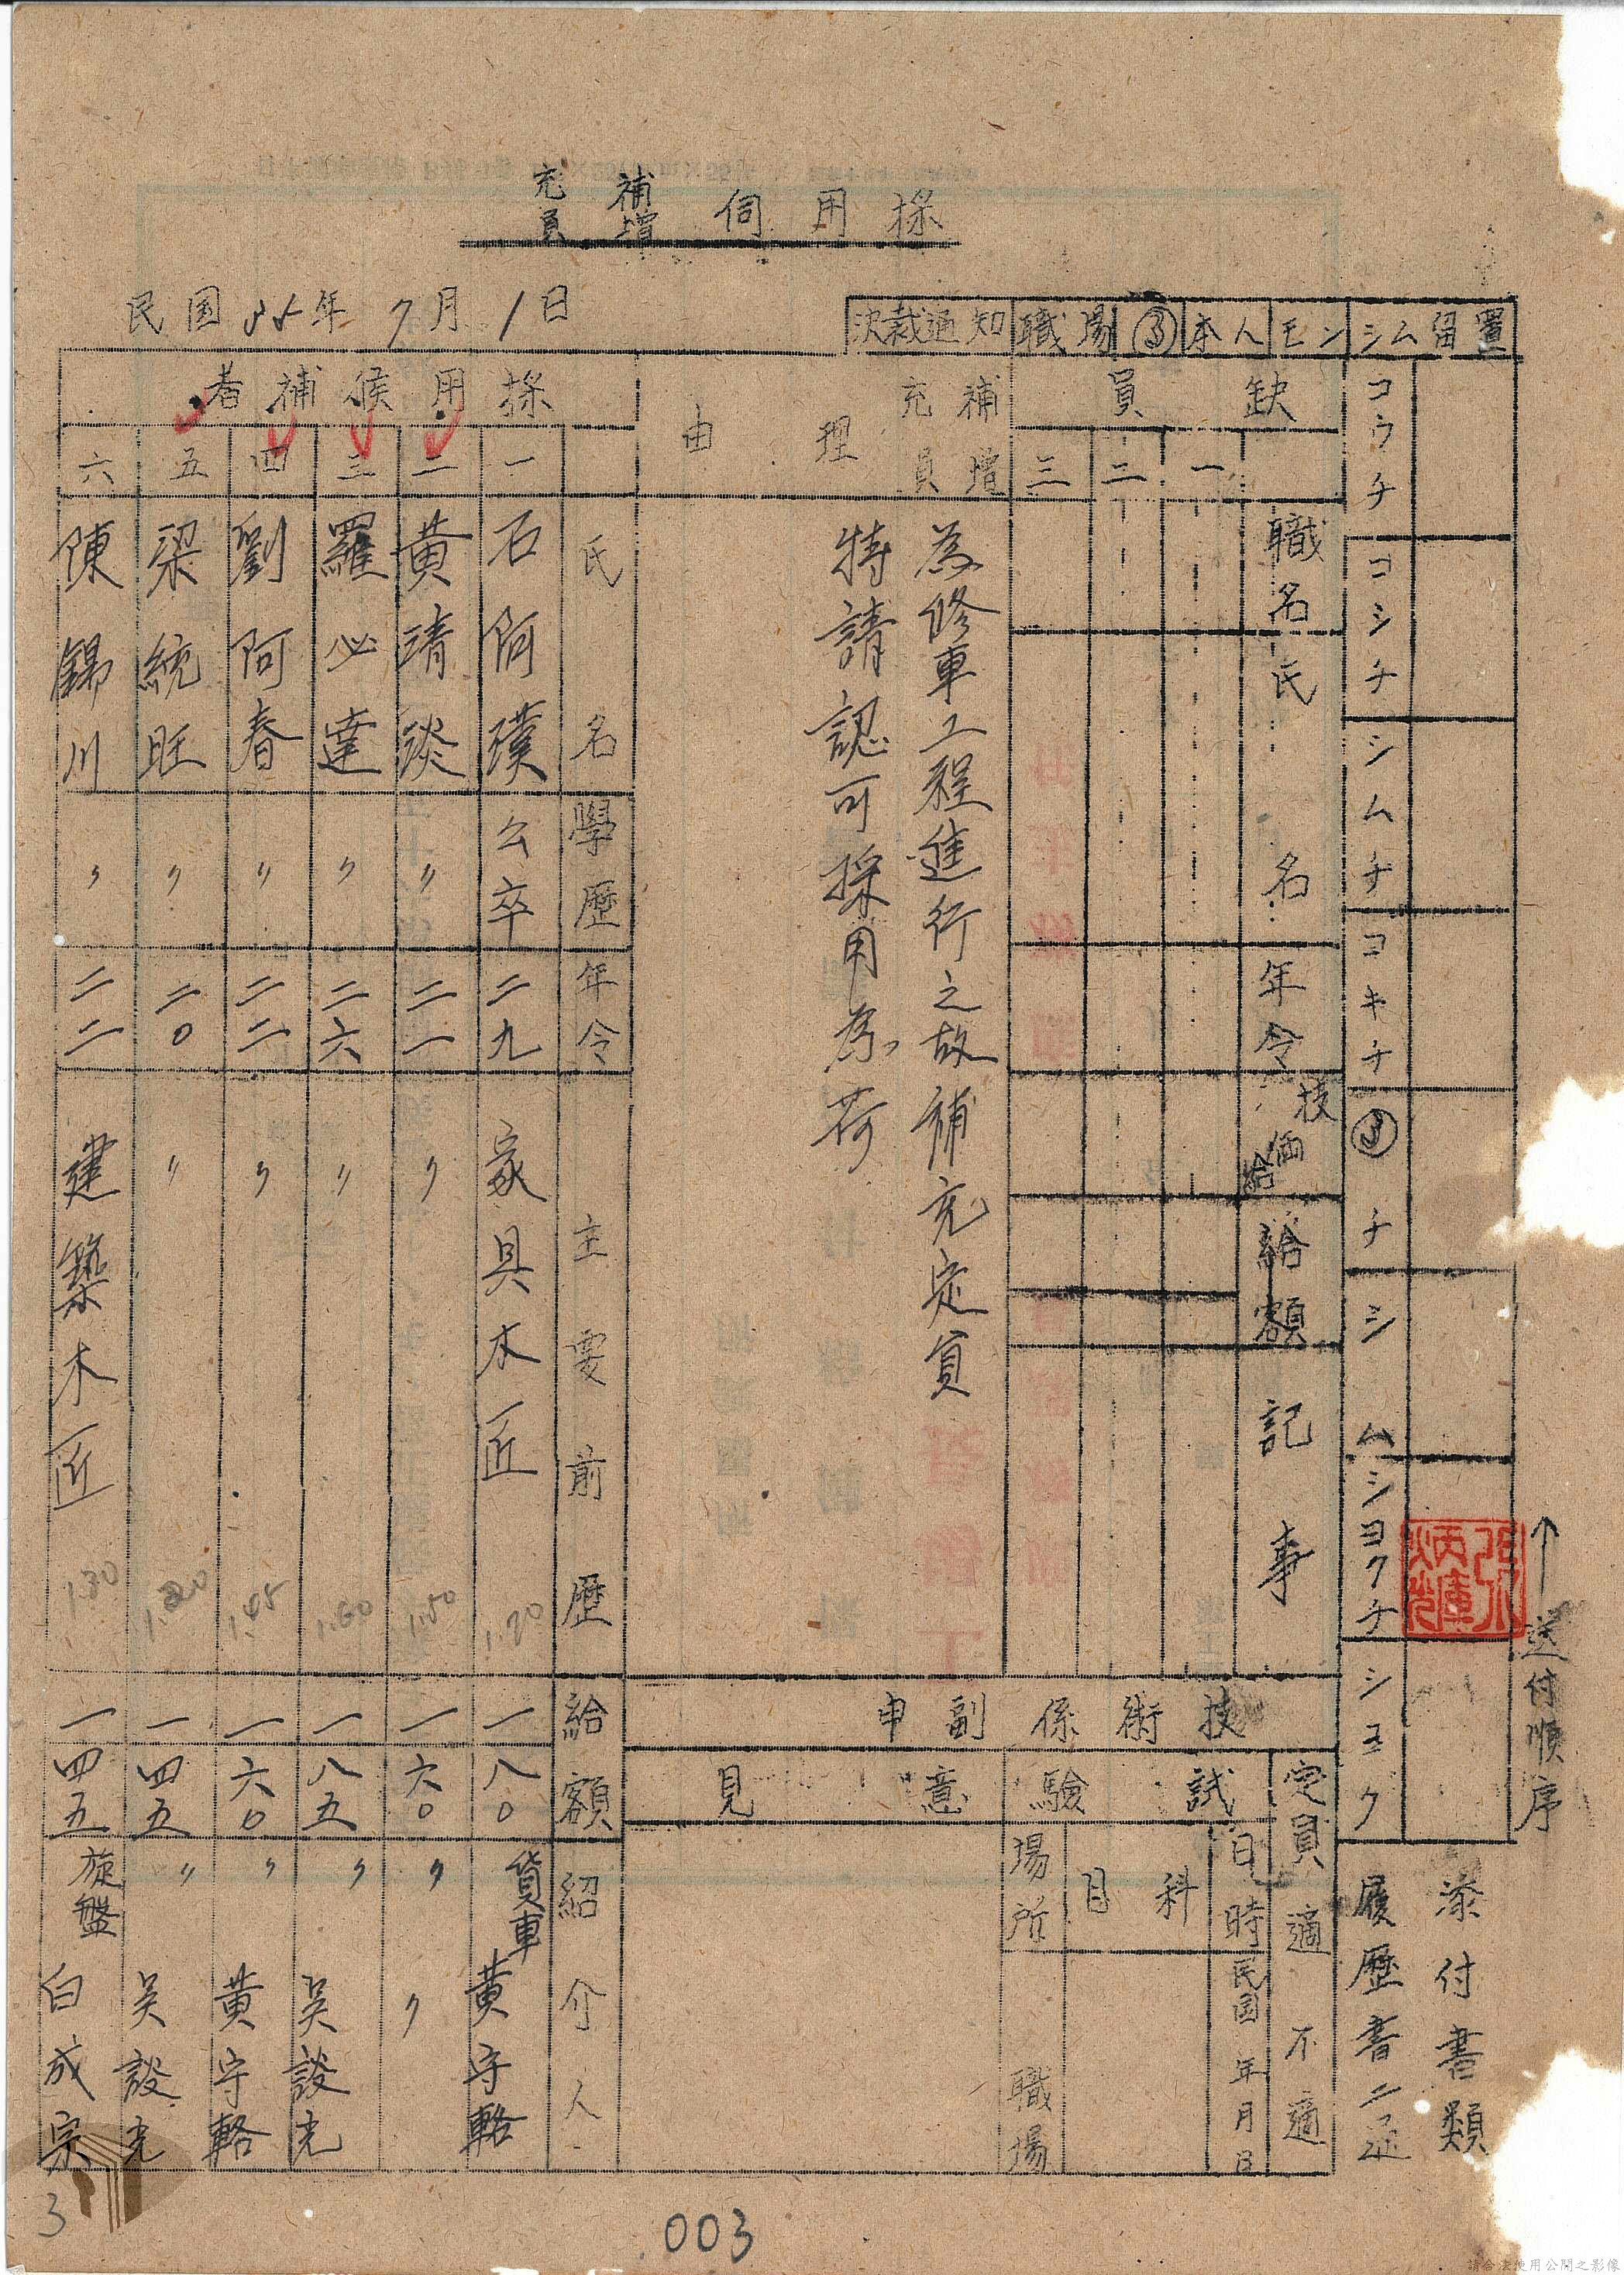 採用伺 補充 增員
民国35年7月1日
決裁通知 職場 本人 モンシム 留置
コウチ
コシチ
シムチ
コキチ
チシム
シヨクチ
シヨク
送付順序
添付書類
履歷書二通
缺員
一
二
三
職名
氏名
年令
技価給
給額
記事
補充 增員 理由
為修車工程進行之故補充定員
特請認可採用為荷
技術係副申
定員 適 不適
試驗
意見
日時 民国 年 月 日
科目
場所 職場
採用候補者
氏名 學歷 年令 主要前歷 給額 紹介人
一 石阿璞 公卒 二九 家具木匠 1.20 一八〇 貨車 黄守輅
二 黄清淡 〃 二一 〃 1.50 一六〇 〃 〃
三 羅必達 〃 二六 〃 1.60 一八五 〃 吳設光
四 劉阿春 〃 二二 〃 1.45 一六〇 〃 黄守輅
五 梁統旺 〃 二〇 〃 1.20 一四五 〃 吳設光
六 陳錦川 〃 二二 建築木匠 1.30 一四五 旋盤 白成宗
3
003
請合法使用公開之影像